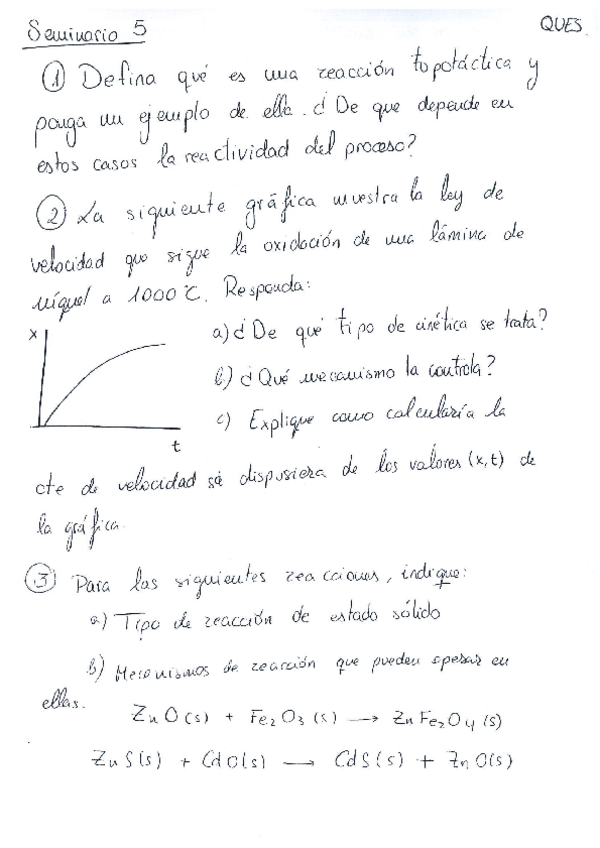 Seminario 5
QUES
① Defina qué es una reacción topotáctica y
ponga un ejemplo de ella. ¿De que depende en
estos casos la reactividad del proceso?
② La siguiente gráfica muestra la ley de
velocidad que sigue la oxidación de una lámina de
níquel a 1000°C. Responda:
x
t
a) ¿De qué tipo de cinética se trata?
b) ¿Qué mecanismo la controla?
c) Explique como calcularía la
cte de velocidad si dispusiera de los valores (x,t) de
la gráfica.
③ Para las siguientes reacciones, indique:
a) Tipo de reacción de estado sólido
b) Mecanismos de reacción que pueden operar en
ellas.
ZnO(s) + Fe₂O₃(s) → ZnFe₂O₄(s)
ZnS(s) + CdO(s) → CdS(s) + ZnO(s)